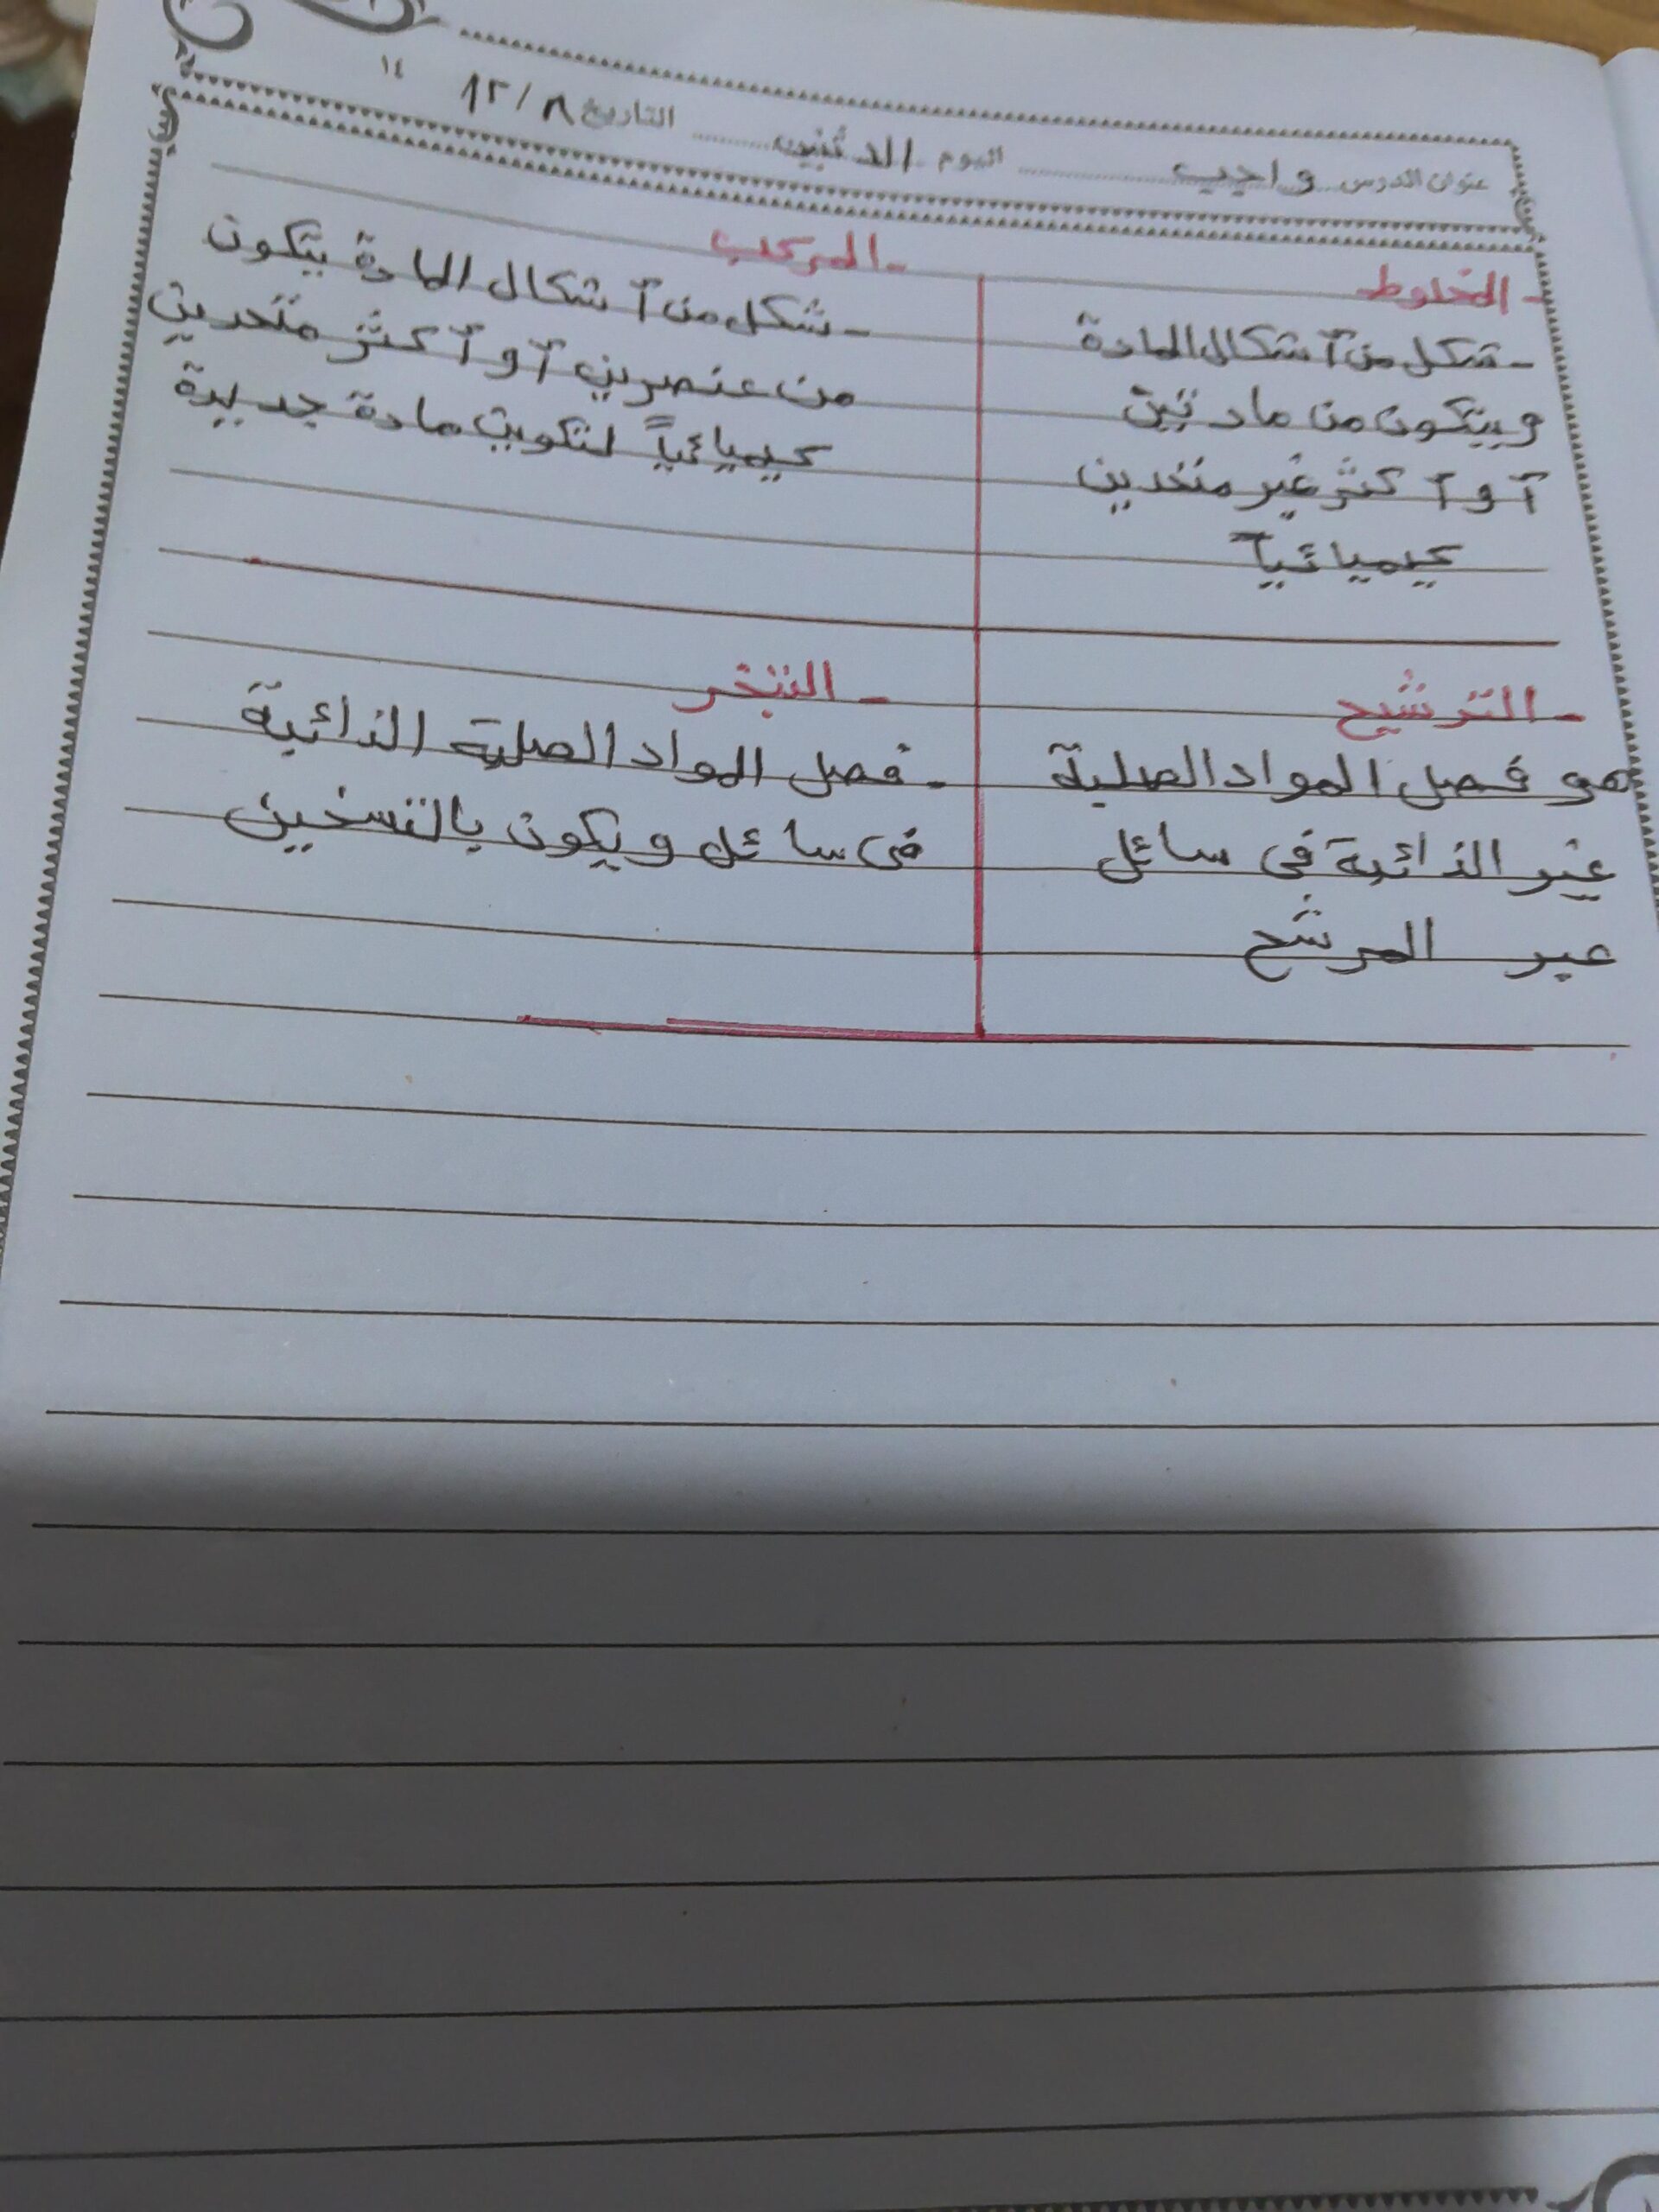 ١٤
عنوان الدرس واجب اليوم الاثنين التاريخ ١٢/٨
- المخلوط
- شكل من أشكال المادة
ويتكون من مادتين
أو أكثر غير متحدين
كيميائياً
- المركب
- شكل من أشكال المادة يتكون
من عنصرين أو أكثر متحدين
كيميائياً لتكوين مادة جديدة
- الترشيح
هو فصل المواد الصلبة
غير الذائبة في سائل
عبر المرشح
- التبخر
- فصل المواد الصلبة الذائبة
في سائل ويكون بالتسخين